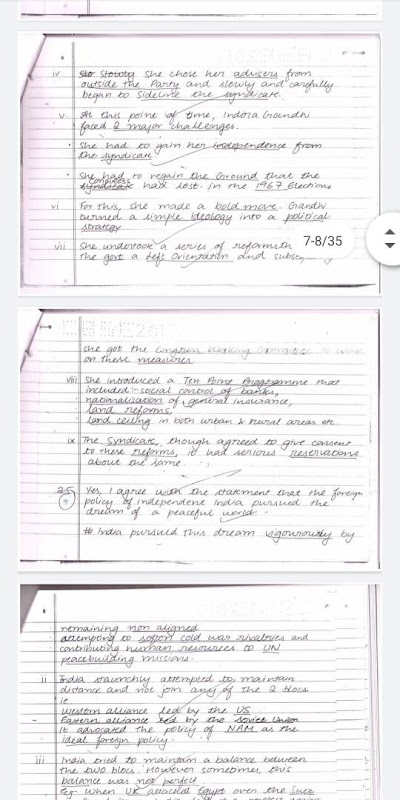 iv She chose her advisers from
outside the Party and slowly and carefully
began to sideline the syndicate.
v. At this point of time, Indira Gandhi
faced 2 major challenges.
• She had to gain her independence from
the syndicate
• She had to regain the Ground that the
Congress had lost in the 1967 Elections
vi For this, she made a bold move. Gandhi
turned a simple ideology into a political
strategy
vii She undertook a series of reforms
the govt a left Orientation and
7-8/35
she got the Congress Working Committee to work
on these measures.
viii She introduced a Ten Point Programme that
included:- social control of banks,
nationalisation of general insurance,
land reforms,
land ceiling in both urban & rural areas etc.
ix The Syndicate, though agreed to give consent
to these reforms, it had serious reservations
about the same.
25 Yes, I agree with the statement that the foreign
policy of independent India pursued the
dream of a peaceful world.
# India pursued this dream vigourously by
remaining non aligned
attempting to soften cold war rivalries and
contributing human resources to UN
peacebuilding missions.
ii India staunchly attempted to maintain
distance and not join any of the 2 blocs
ie
Western alliance led by the US
- Eastern alliance led by the Soviet Union
It advocated the policy of NAM as the
ideal foreign policy.
iii India tried to maintain a balance between
the two blocs. However sometimes, this
balance was not perfect.
Eg when UK attacked Egypt over the Suez